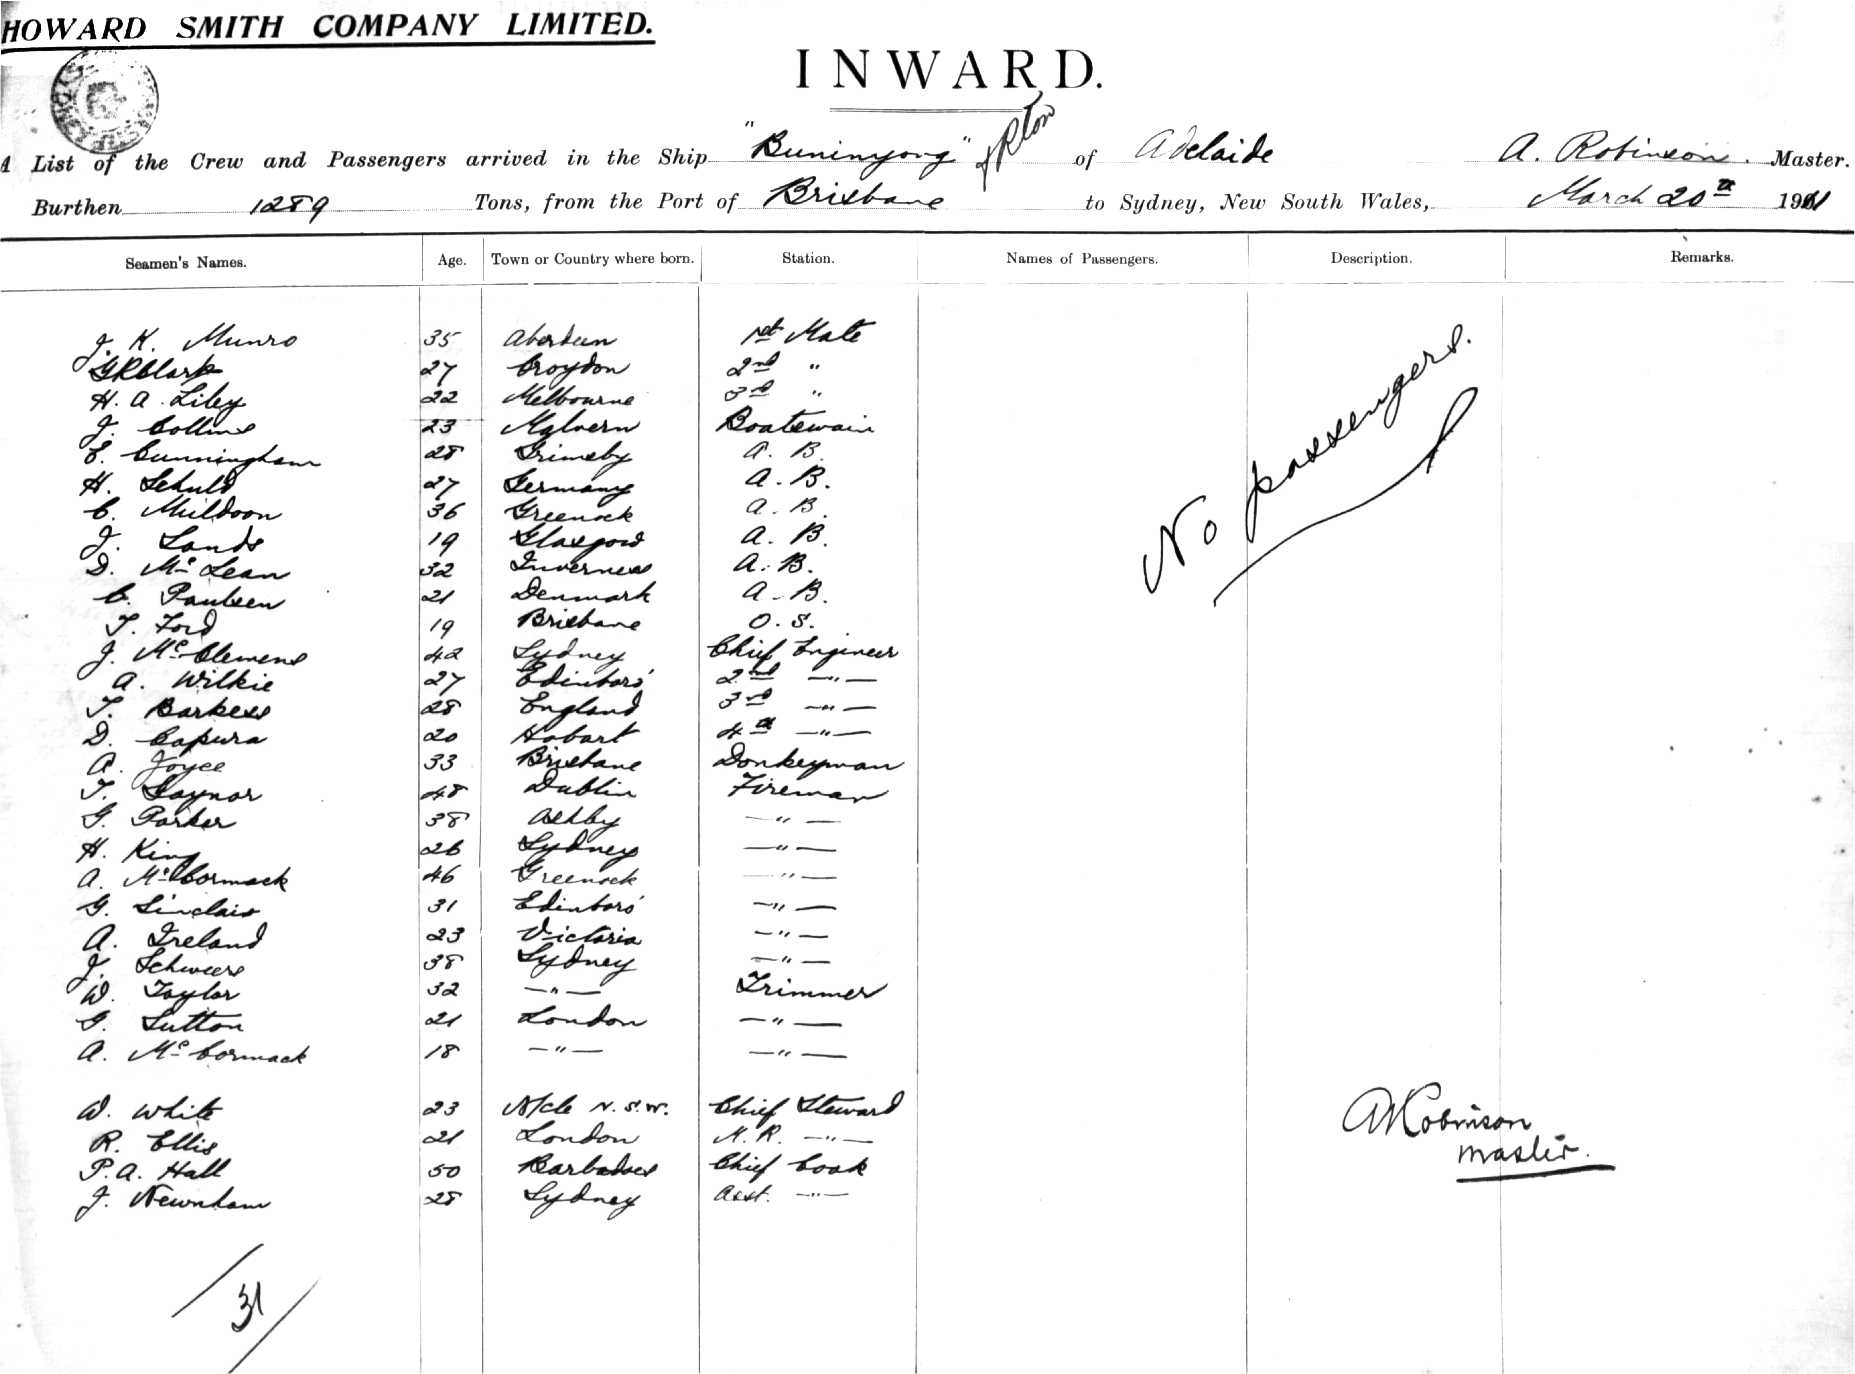 HOWARD SMITH COMPANY LIMITED.
INWARD.
A List of the Crew and Passengers arrived in the Ship "Buninyong" of Adelaide A. Robinson. Master.
Burthen 1289 Tons, from the Port of Brisbane to Sydney, New South Wales, March 20th 1911
Seamen's Names. Age. Town or Country where born. Station. Names of Passengers. Description. Remarks.
J. K. Munro 35 Aberdeen 1st Mate
G R Clark 27 Croydon 2nd "
H. A. Liley 22 Melbourne 3rd "
J. Collins 23 Malvern Boatswain
E. Cunningham 28 Grimsby A. B.
H. Schuld 27 Germany A. B.
C. Muldoon 36 Greenock A. B.
J. Sands 19 Glasgow A. B.
D. Mc Lean 32 Inverness A. B.
C. Paulsen 21 Denmark A. B.
T. Ford 19 Brisbane O. S.
J. Mc Clemens 42 Sydney Chief Engineer
A. Wilkie 27 Edinboro' 2nd —"—
T. Barkess 28 England 3rd —"—
D. Capura 20 Hobart 4th —"—
A. Joyce 33 Brisbane Donkeyman
T. Gaynor 48 Dublin Fireman
G. Parker 38 Ashby —"—
H. King 26 Sydney —"—
A. Mc Cormack 46 Greenock —"—
G. Sinclair 31 Edinboro' —"—
A. Ireland 23 Victoria —"—
J. Schweers 38 Sydney —"—
W. Taylor 32 —"— Trimmer
G. Sutton 21 London —"—
A. Mc Cormack 18 —"— —"—
W. White 23 N/cle N.S.W. Chief Steward
R. Ellis 21 London —"—
P. A. Hall 50 Barbadoes Chief Cook
J. Newnham 28 Sydney Asst. —"—
31
No passengers.
A Robinson
Master.